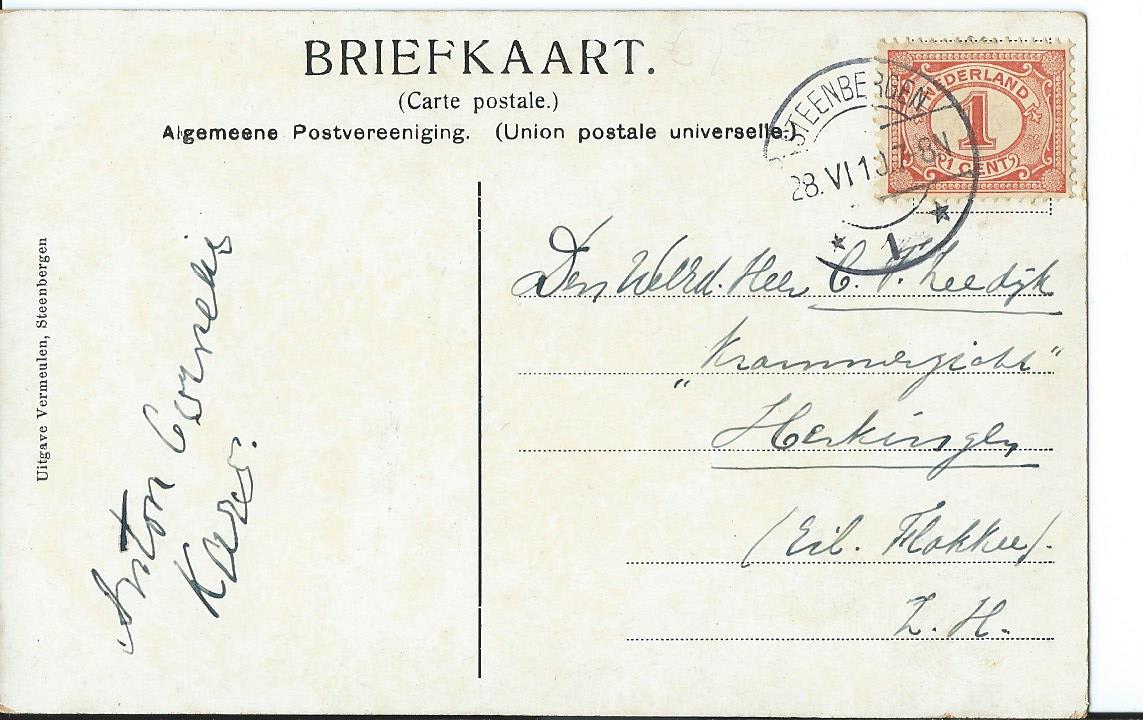 BRIEFKAART.
(Carte postale.)
Algemeene Postvereeniging. (Union postale universelle.)
STEENBERGEN
28.VI 10 7-8V
1
NEDERLAND
1
1 CENT
Uitgave Vermeulen, Steenbergen
Anton Cornelis
Den WelEd. Heer C. v. Zeedijk
"Krammerzicht"
Herkingen
(Eil. Flakkee).
Z. H.